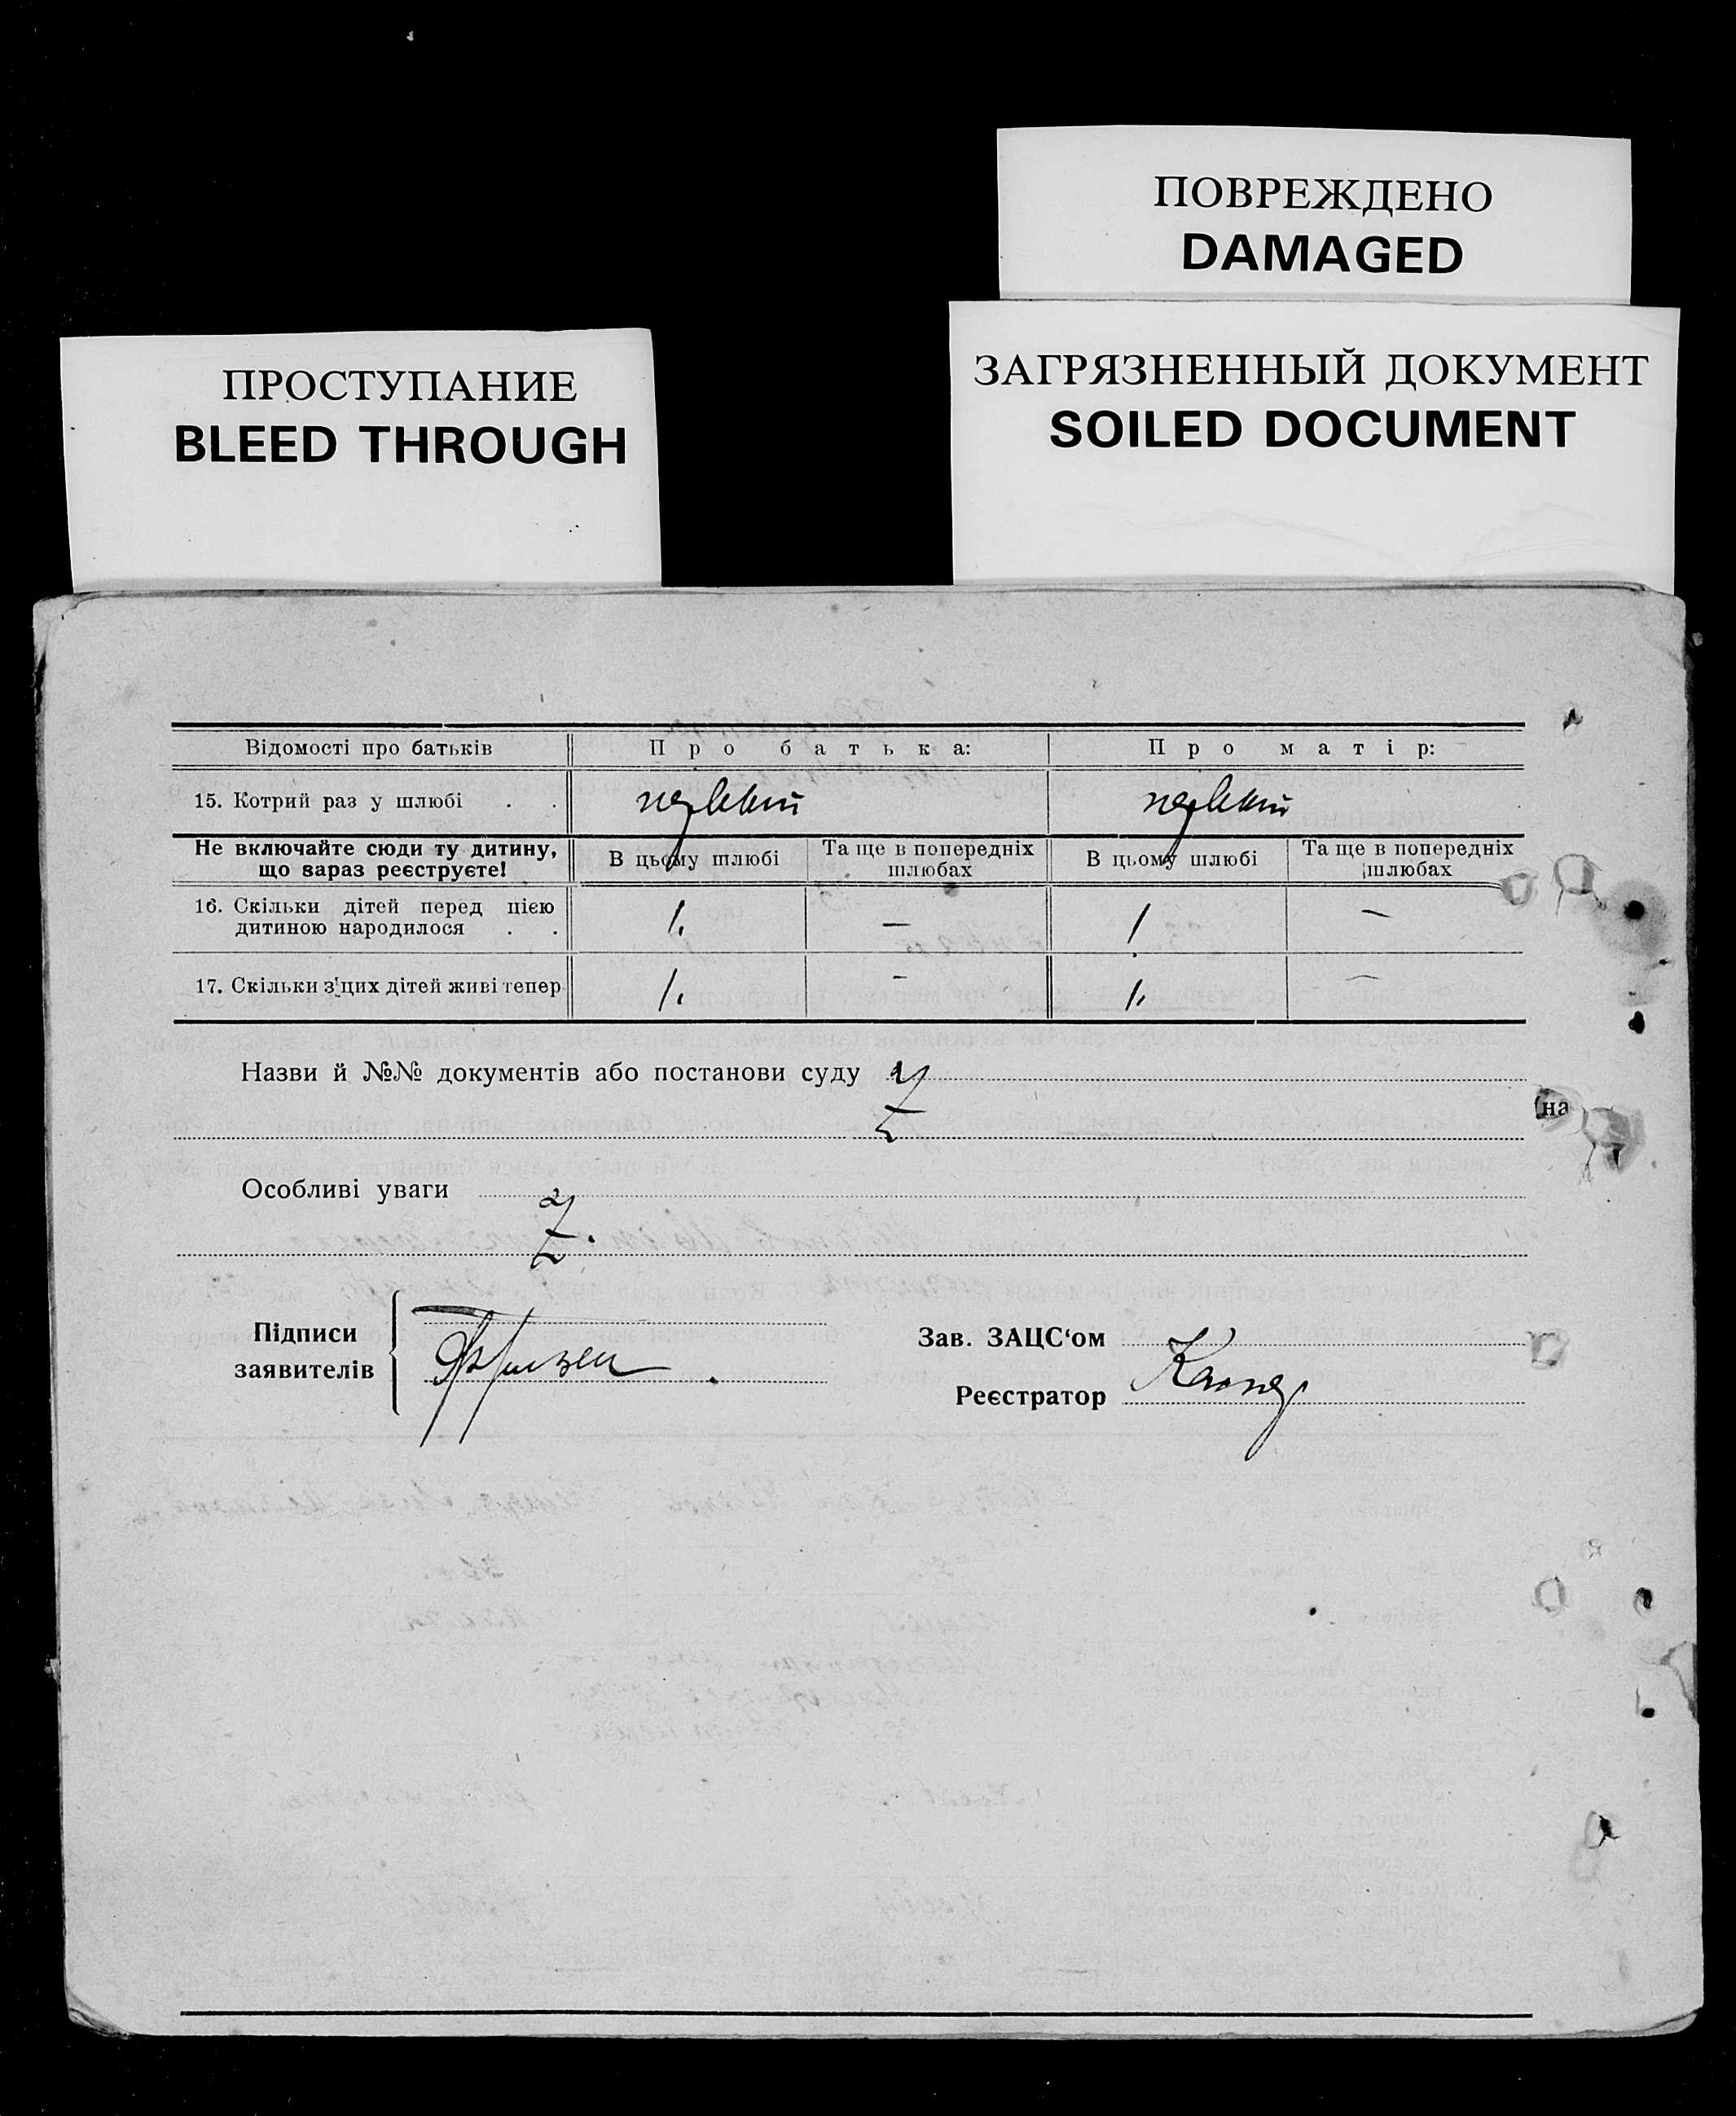 ПОВРЕЖДЕНО
DAMAGED
ПРОСТУПАНИЕ
BLEED THROUGH
ЗАГРЯЗНЕННЫЙ ДОКУМЕНТ
SOILED DOCUMENT
Відомості про батьків Про батька: Про матір:
15. Котрий раз у шлюбі . . первий первий
Не включайте сюди ту дитину, що зараз реєструєте! В цьому шлюбі Та ще в попередніх шлюбах В цьому шлюбі Та ще в попередніх шлюбах
16. Скільки дітей перед цією
дитиною народилося . . 1. — 1 —
17. Скільки з цих дітей живі тепер 1. — 1. —
Назви й №№ документів або постанови суду
(на
Особливі уваги
Підписи
заявителів
Зав. ЗАЦС‘ом
Реєстратор